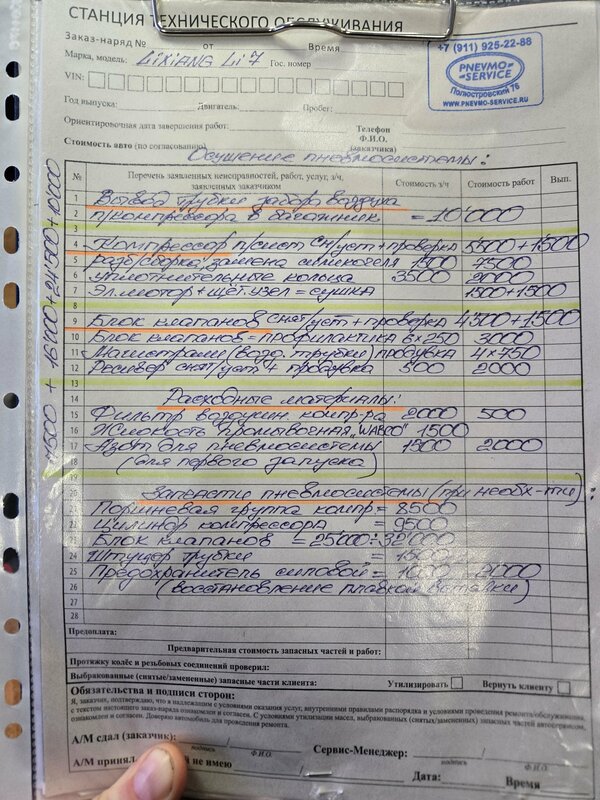 СТАНЦИЯ ТЕХНИЧЕСКОГО ОБСЛУЖИВАНИЯ
Заказ-наряд № от Время
Марка, модель: LIXIANG Li 7 Гос. номер
VIN:
+7 (911) 925-22-88
PNEVMO-SERVICE
Полюстровский 76
WWW.PNEVMO-SERVICE.RU
Год выпуска: Двигатель: Пробег:
Ориентировочная дата завершения работ:
Телефон
Ф.И.О.
(заказчика)
Стоимость авто (по согласованию)
Осушение пневмосистемы:
№ Перечень заявленных неисправностей, работ, услуг, з/ч, заявленных заказчиком Стоимость з/ч Стоимость работ Вып.
1 Вывод трубки забора воздуха
2 п/компрессора в багажник = 10'000
3
4 Компрессор п/сист сн/уст + проверка 5'500 + 1'500
5 Разб/сборка, замена силикогеля 1'500 7500
6 Уплотнительные кольца 3500 2000
7 Эл.мотор + щёт.узел = сушка 1500 + 1500
8
9 Блок клапанов снят/уст + проверка 4'500 + 1'500
10 Блок клапанов = профилактика 6 x 250 3000
11 Магистрали (возд. трубки) продувка 4 x 750
12 Ресивер снят/уст + продувка 500 2000
13
14 Расходные материалы:
15 Фильтр воздушн. комп-ра 2000 500
16 Жидкость промывочная „WABCO" 1500
17 Азот для пневмосистемы 1500 2000
18 (для первого запуска)
19
20 Запчасти пневмосистемы (при необх-ти):
21 Поршневая группа компр = 8500
22 Цилиндр компрессора = 9500
23 Блок клапанов = 25'000 ÷ 32'000
24 Штуцер трубки = 1500
25 Предохранитель силовой = 1000 ÷ 2000
26 (восстановление плавкой вставки)
27
28
Предоплата:
Предварительная стоимость запасных частей и работ:
Протяжку колёс и резьбовых соединений проверил:
Выбракованные (снятые/замененные) запасные части клиента: Утилизировать Вернуть клиенту
Обязательства и подписи сторон:
Я, заказчик, подтверждаю, что я надлежащим с условиями оказания услуг, внутренними правилами распорядка и условиями проведения ремонта/обслуживания,
с текстом настоящего заказ-наряда ознакомлен и согласен. С условиями утилизации масел, выбракованных (снятых/замененных) запасных частей автосервисом,
ознакомлен и согласен. Доверяю автомобиль для проведения ремонта.
А/М сдал (заказчик): / Сервис-Менеджер: /
подпись Ф.И.О. подпись Ф.И.О.
А/М принял не имею / Дата: Время
подпись Ф.И.О.